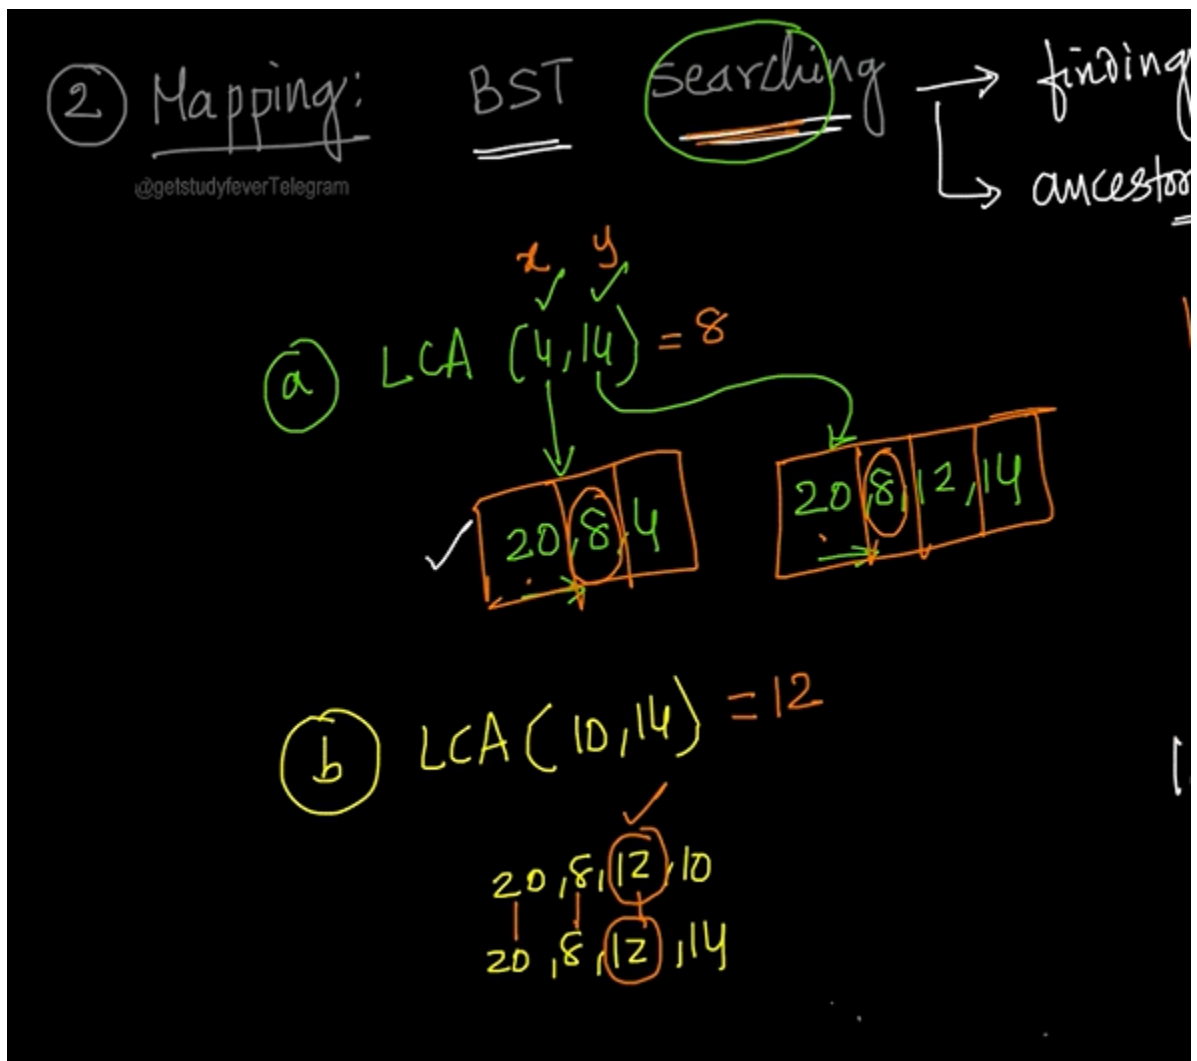 ② Mapping: BST searching → finding
@getstudyfeverTelegram
→ ancestor
x y
ⓐ LCA (4,14) = 8
20,8,4
20,8,12,14
ⓑ LCA (10,14) = 12
20,8,12,10
20,8,12,14